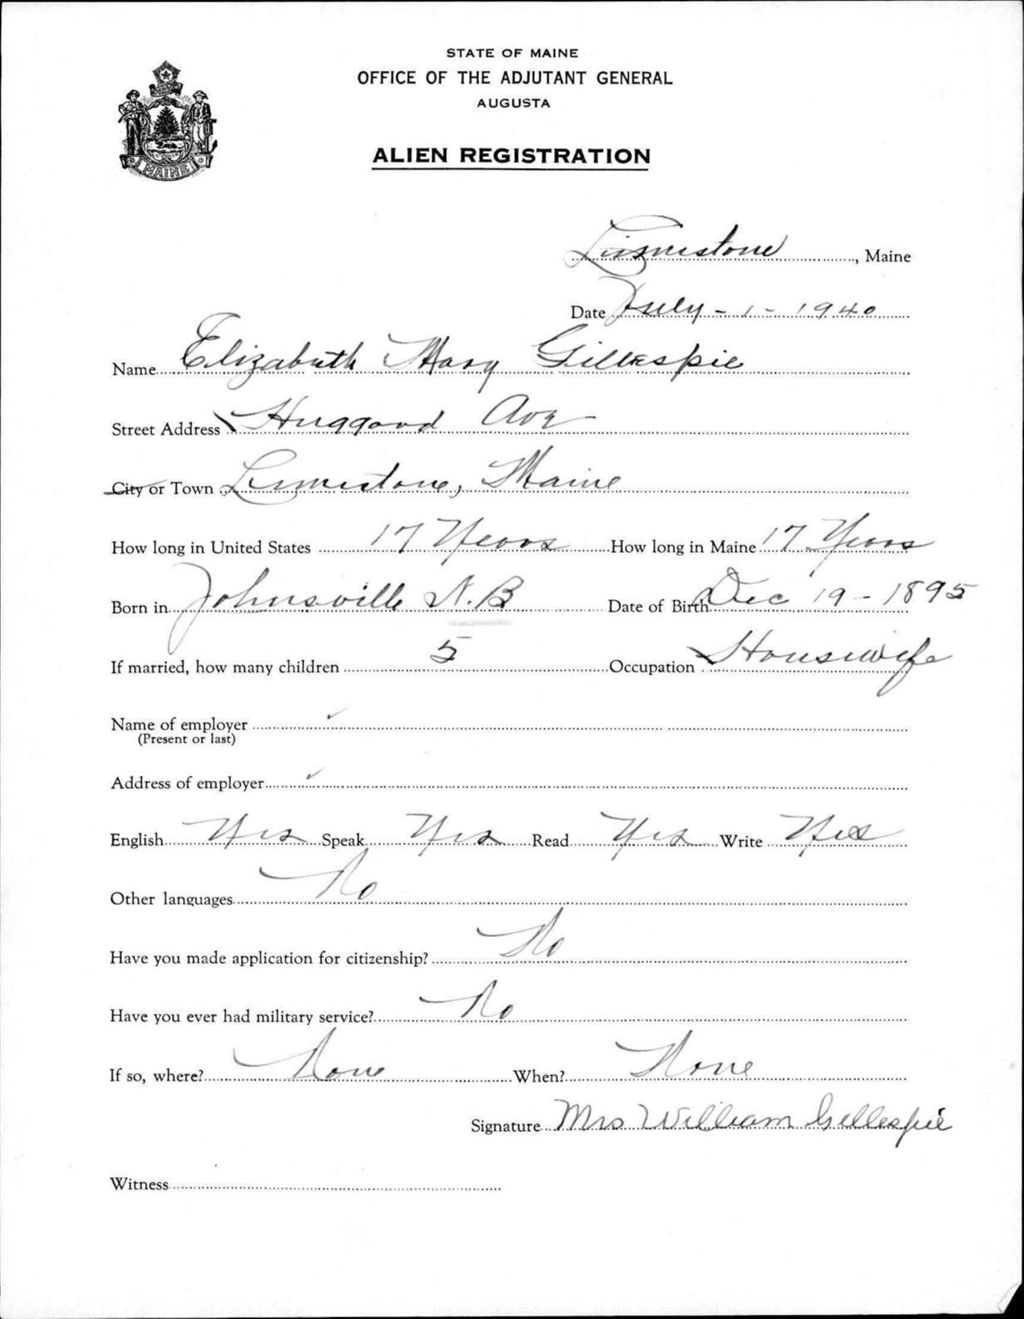 STATE OF MAINE
OFFICE OF THE ADJUTANT GENERAL
AUGUSTA
ALIEN REGISTRATION
MAINE
Limestone, Maine
Date July - 1 - 1940
Name Elizabeth Mary Gillespie
Street Address Huggard Ave
City or Town Limestone, Maine
How long in United States 17 Years How long in Maine 17 Years
Born in Johnsville N.B Date of Birth Dec 19 - 1895
If married, how many children 5 Occupation Housewife
Name of employer
(Present or last)
Address of employer
English Yes Speak Yes Read Yes Write Yes
Other languages No
Have you made application for citizenship? No
Have you ever had military service? No
If so, where? None When? None
Signature Mrs William Gillespie
Witness